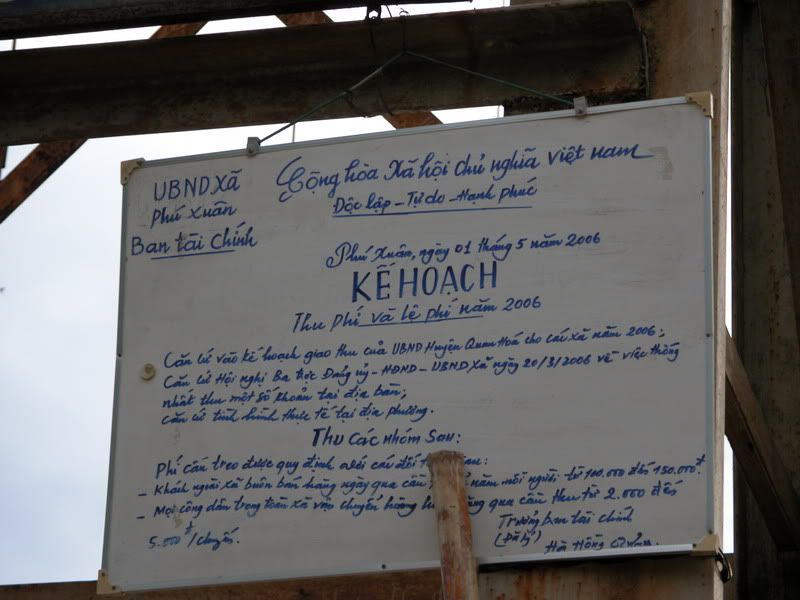 UBND xã
Phú Xuân
Ban tài chính
Cộng hòa xã hội chủ nghĩa việt nam
Độc lập - Tự do - Hạnh phúc
Phú xuân, ngày 01 tháng 5 năm 2006
KẾ HOẠCH
Thu phí và lệ phí năm 2006
Căn cứ vào kế hoạch giao thu của UBND Huyện Quan Hoá cho các xã năm 2006;
Căn cứ Hội nghị Ba trực Đảng ủy - HĐND - UBND xã ngày 20/3/2006 về việc thống
nhất thu một số khoản tại địa bàn;
Căn cứ tình hình thực tế tại địa phương.
Thu các nhóm sau:
Phí cầu treo được quy định với các đối
- Khách ngoài xã buôn bán hàng ngày qua cầu năm mỗi người từ 100.000 đến 150.000đ.
- Mọi công dân trong toàn xã vận chuyển hàng qua cầu thu từ 2.000 đến
5.000đ/chuyến.
Trưởng ban tài chính
(Đã ký)
Hà Hồng